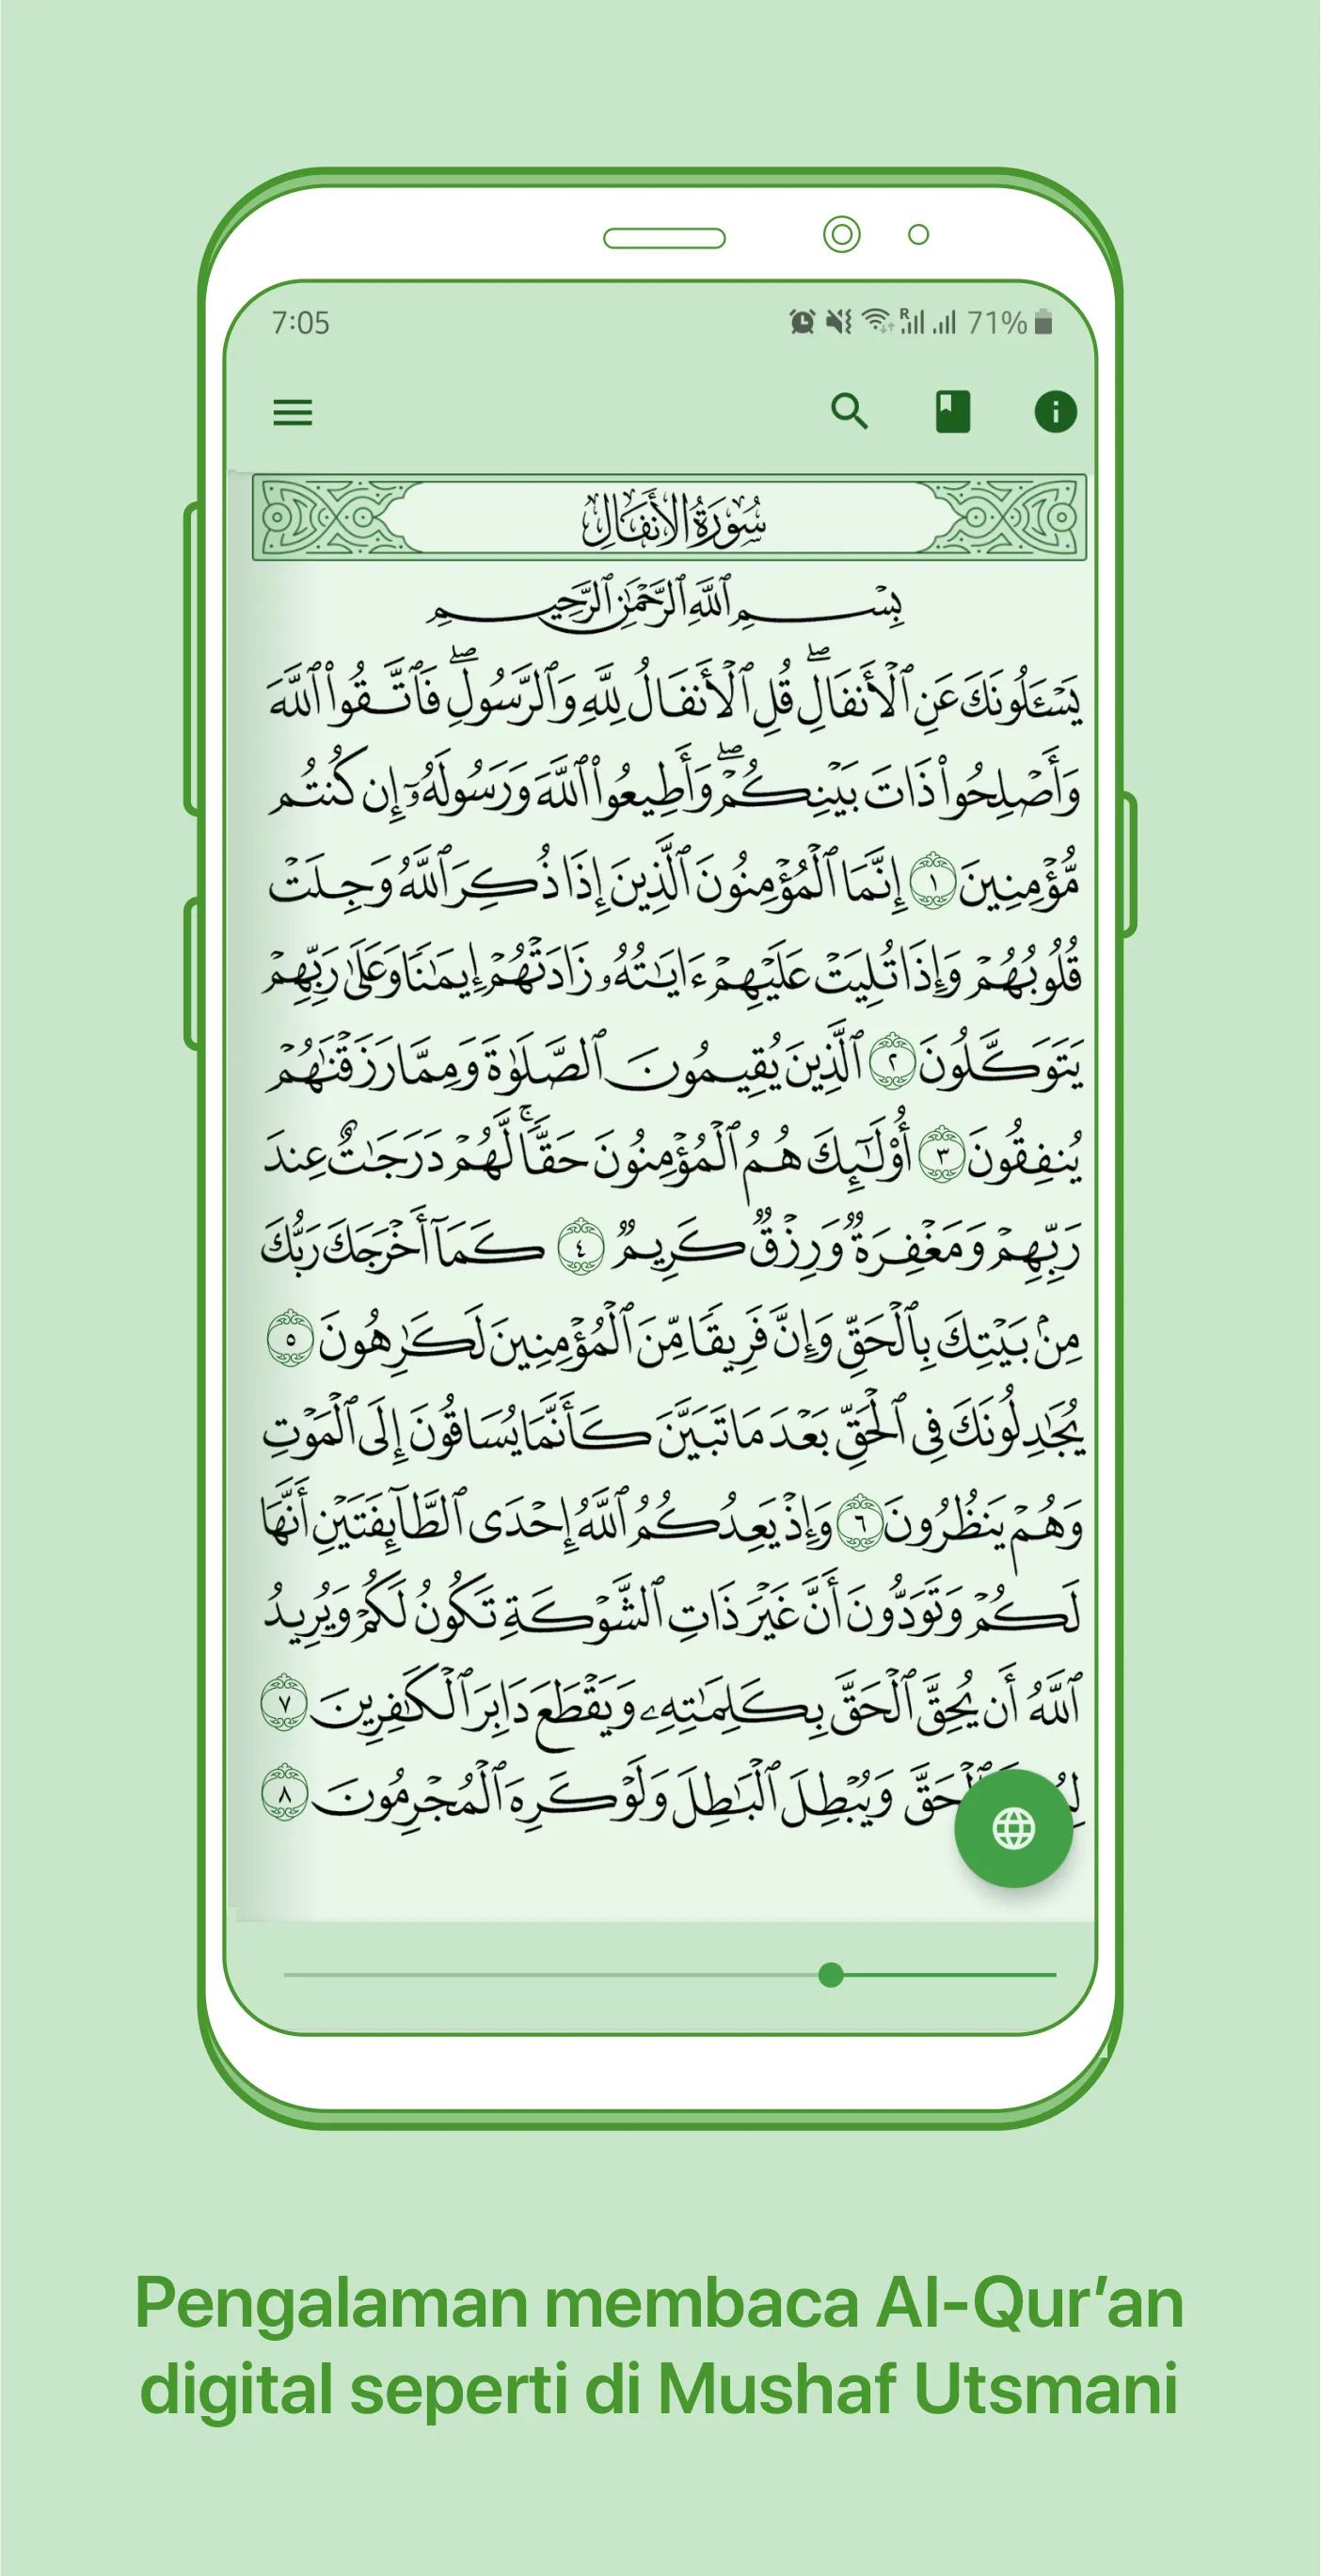 7:05
R 71%
سُورَةُ الأَنفَالِ
بِسْمِ ٱللَّهِ ٱلرَّحْمَٰنِ ٱلرَّحِيمِ
يَسْـَٔلُونَكَ عَنِ ٱلْأَنفَالِۖ قُلِ ٱلْأَنفَالُ لِلَّهِ وَٱلرَّسُولِۖ فَٱتَّقُوا۟ ٱللَّهَ
وَأَصْلِحُوا۟ ذَاتَ بَيْنِكُمْۖ وَأَطِيعُوا۟ ٱللَّهَ وَرَسُولَهُۥٓ إِن كُنتُم
مُّؤْمِنِينَ ١ إِنَّمَا ٱلْمُؤْمِنُونَ ٱلَّذِينَ إِذَا ذُكِرَ ٱللَّهُ وَجِلَتْ
قُلُوبُهُمْ وَإِذَا تُلِيَتْ عَلَيْهِمْ ءَايَٰتُهُۥ زَادَتْهُمْ إِيمَٰنًا وَعَلَىٰ رَبِّهِمْ
يَتَوَكَّلُونَ ٢ ٱلَّذِينَ يُقِيمُونَ ٱلصَّلَوٰةَ وَمِمَّا رَزَقْنَٰهُمْ
يُنفِقُونَ ٣ أُو۟لَٰٓئِكَ هُمُ ٱلْمُؤْمِنُونَ حَقًّاۚ لَّهُمْ دَرَجَٰتٌ عِندَ
رَبِّهِمْ وَمَغْفِرَةٌ وَرِزْقٌ كَرِيمٌ ٤ كَمَآ أَخْرَجَكَ رَبُّكَ
مِنۢ بَيْتِكَ بِٱلْحَقِّ وَإِنَّ فَرِيقًا مِّنَ ٱلْمُؤْمِنِينَ لَكَٰرِهُونَ ٥
يُجَٰدِلُونَكَ فِى ٱلْحَقِّ بَعْدَ مَا تَبَيَّنَ كَأَنَّمَا يُسَاقُونَ إِلَى ٱلْمَوْتِ
وَهُمْ يَنظُرُونَ ٦ وَإِذْ يَعِدُكُمُ ٱللَّهُ إِحْدَى ٱلطَّآئِفَتَيْنِ أَنَّهَا
لَكُمْ وَتَوَدُّونَ أَنَّ غَيْرَ ذَاتِ ٱلشَّوْكَةِ تَكُونُ لَكُمْ وَيُرِيدُ
ٱللَّهُ أَن يُحِقَّ ٱلْحَقَّ بِكَلِمَٰتِهِۦ وَيَقْطَعَ دَابِرَ ٱلْكَٰفِرِينَ ٧
ٱلْحَقَّ وَيُبْطِلَ ٱلْبَٰطِلَ وَلَوْ كَرِهَ ٱلْمُجْرِمُونَ ٨
Pengalaman membaca Al-Qur’an
digital seperti di Mushaf Utsmani